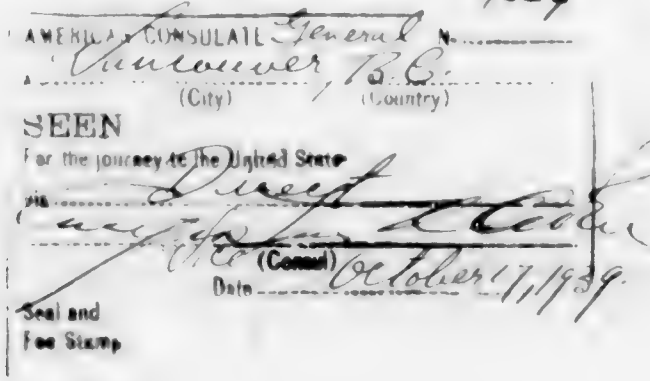 AMERICAN CONSULATE General N
A Vancouver, B.C.
(City) (Country)
SEEN
For the journey to the United State
via Direct
Vice (Consul)
Date October 17, 1939.
Seal and
Fee Stamp